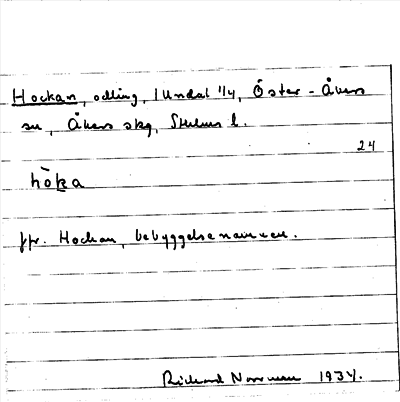 Hockan, odling, i Undal 1/4, Öster-Åkers
sn, Åkers skg, Sthlms l.
24
hò̄ka
jfr. Hockan, bebyggelsenamnen.
Rickard Norrman 1934.